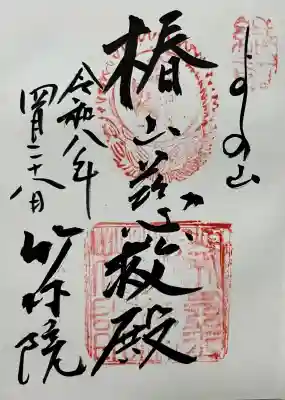 よしの山
椿山慈救殿
令和八年
四月二十八日
竹林院